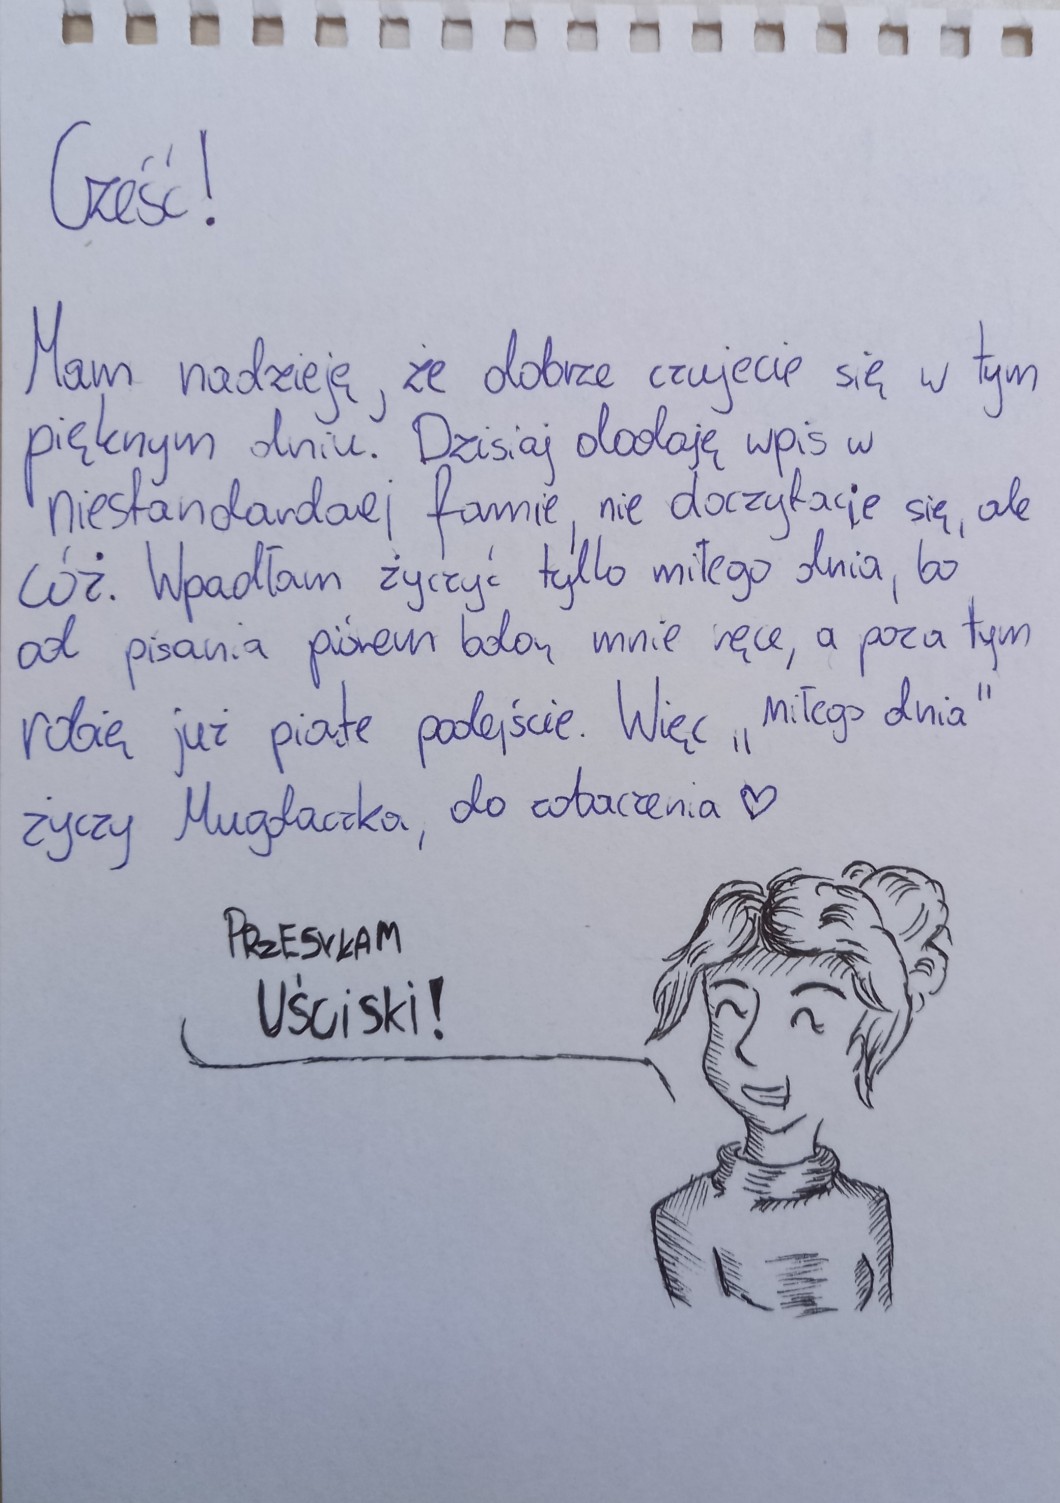 Cześć!
Mam nadzieję, że dobrze czujecie się w tym
pięknym dniu. Dzisiaj dodaję wpis w
niestandardaej formie, nie doczytacie się, ale
cóż. Wpadłam życzyć tylko miłego dnia, bo
od pisania piórem bolą mnie ręce, a poza tym
robię już piąte podejście. Więc „miłego dnia"
życzy Mugdaczka, do zobaczenia ♡
PRZESYŁAM
UŚCISKI!